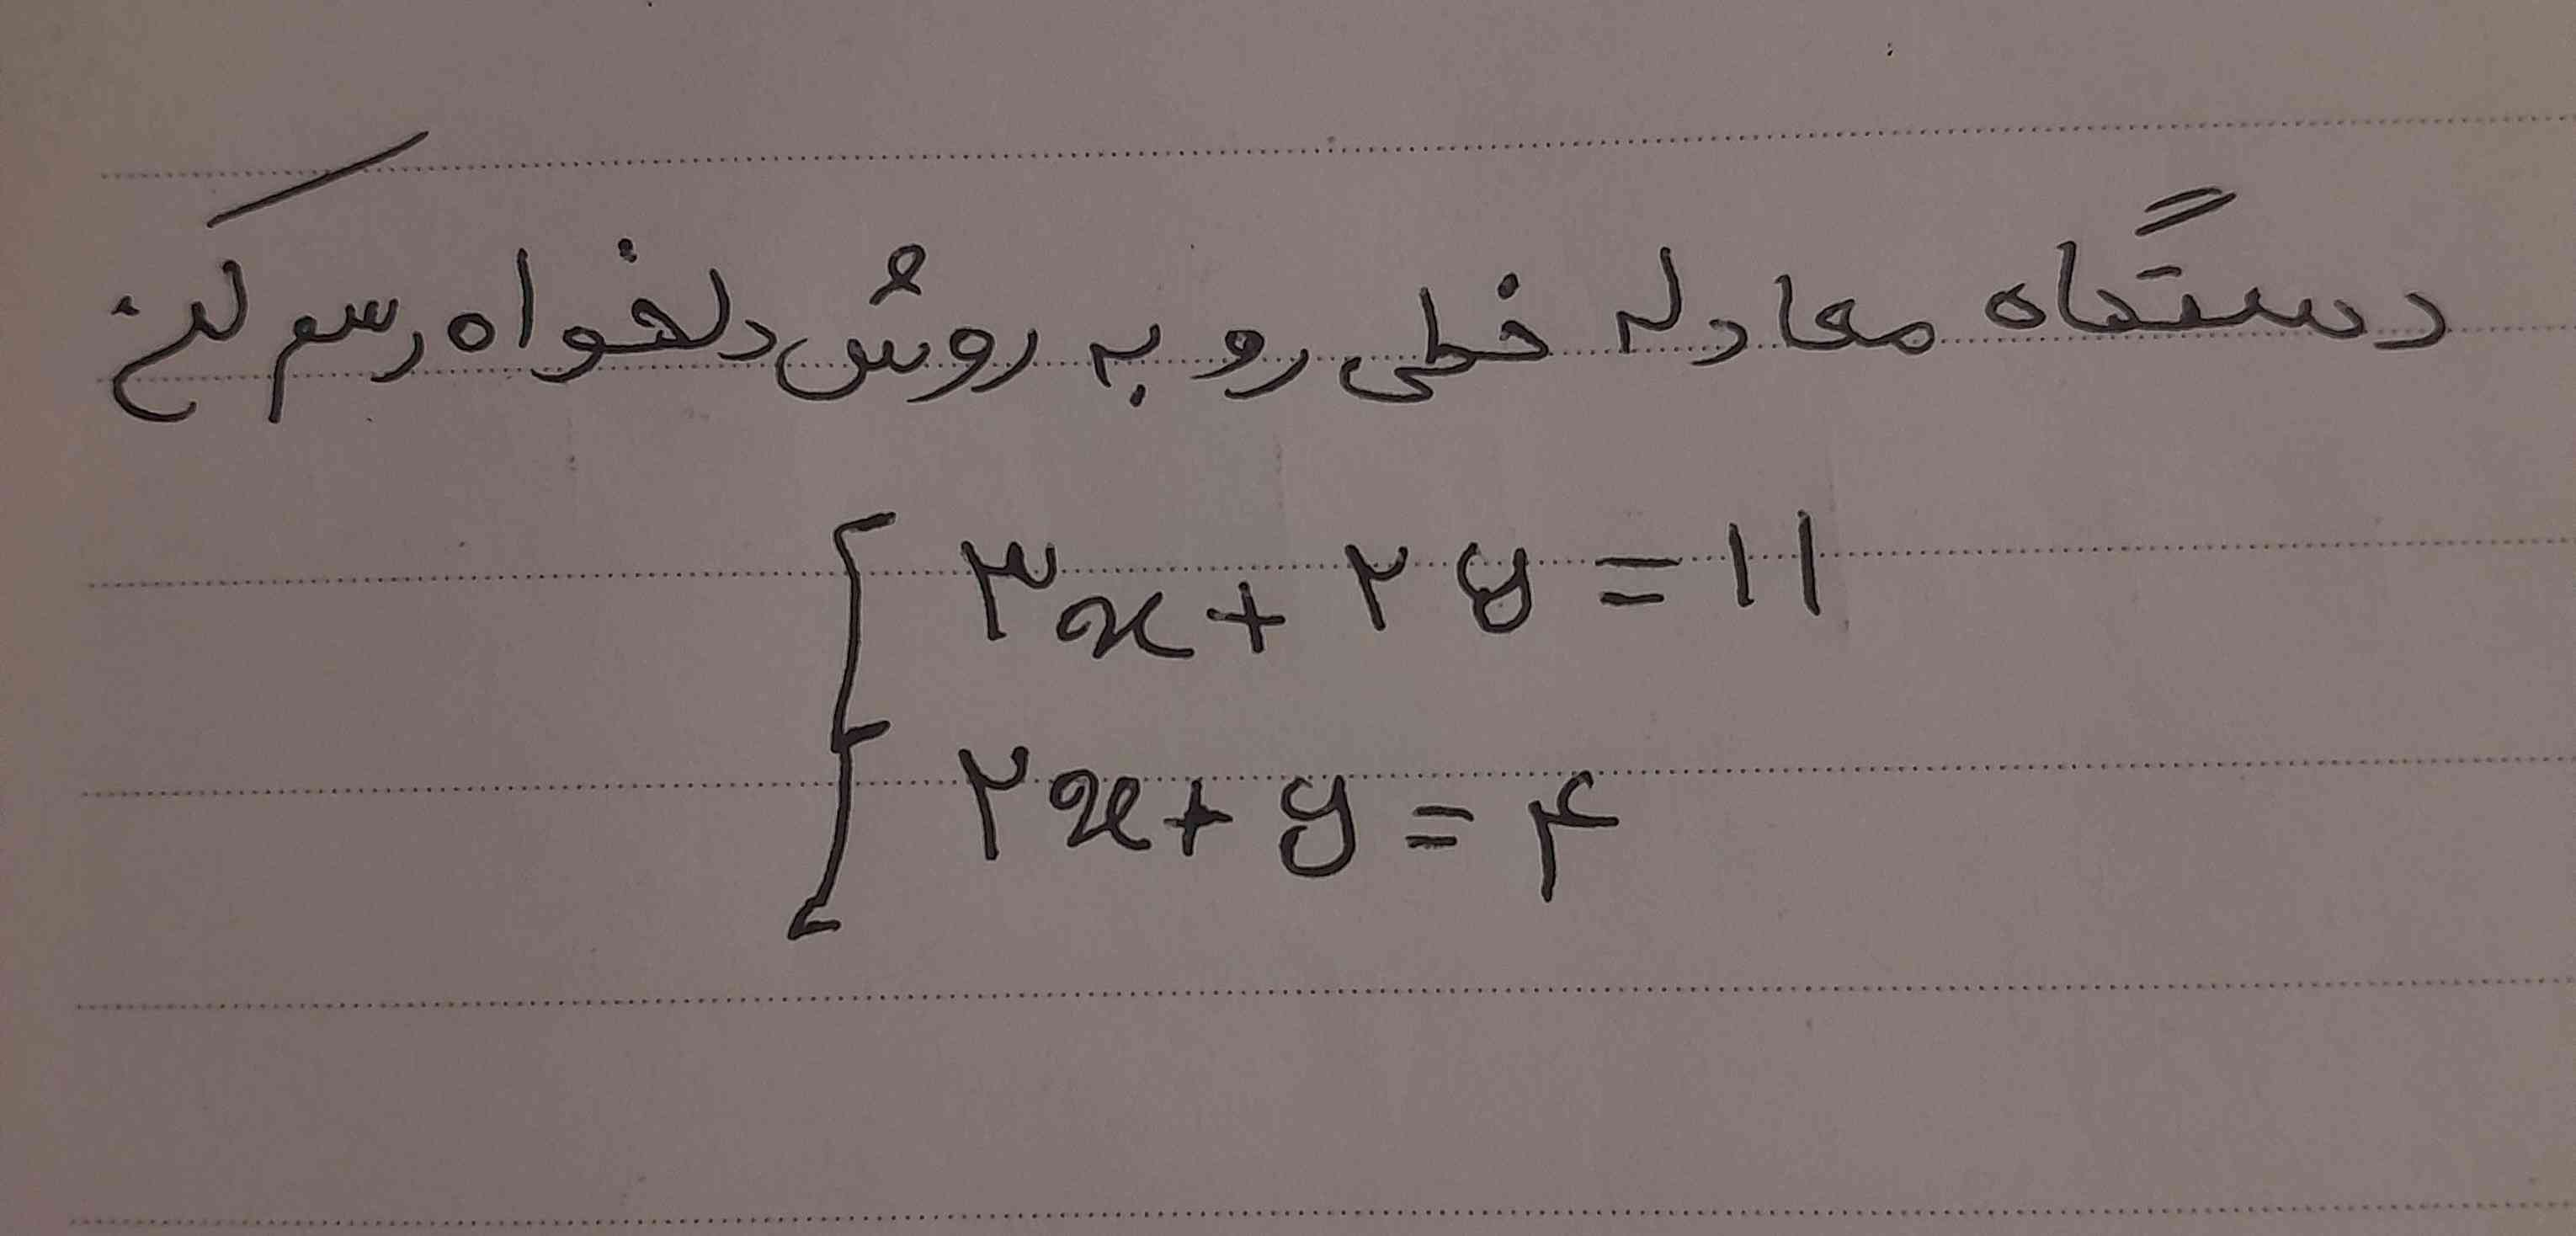 دستگاه معادله خطی رو به روش دلخواه رسم کن
۳x + ۲y = ۱۱
۲x + y = ۴